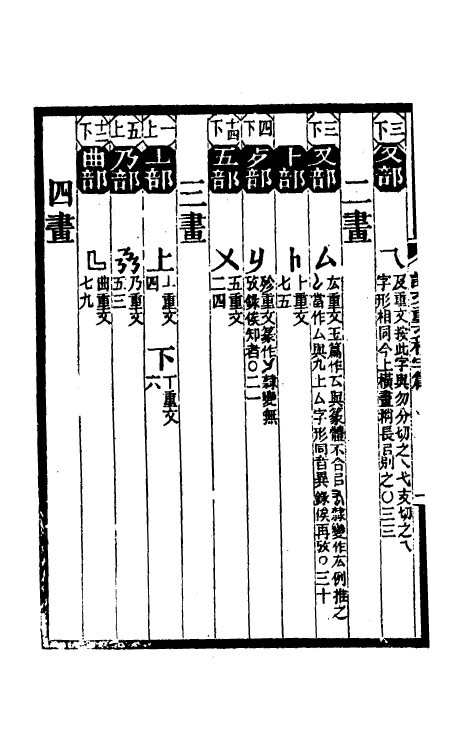 三下
又部
乁 及重文按此字與勿分切之乀弋支切之乁
字形相同今上橫畫稍長㠯別之〇三三
二畫
三下
又部
厶 厷重文玉篇作厶與篆體不合㠯弘隸變作厷例推之
當作厶與九上厶字形同音異錄俟再攷〇三十
卜部
卜重文
七五
四下
歺部
歺重文篆作隸變無
攷錄俟知者〇二一
十四下
五部
㐅 五重文
二四
三畫
一上
丄部
上 丄重文
四
下 丅重文
六
五上
乃部
乃重文
五三
十二下
曲部
曲重文
七九
四畫